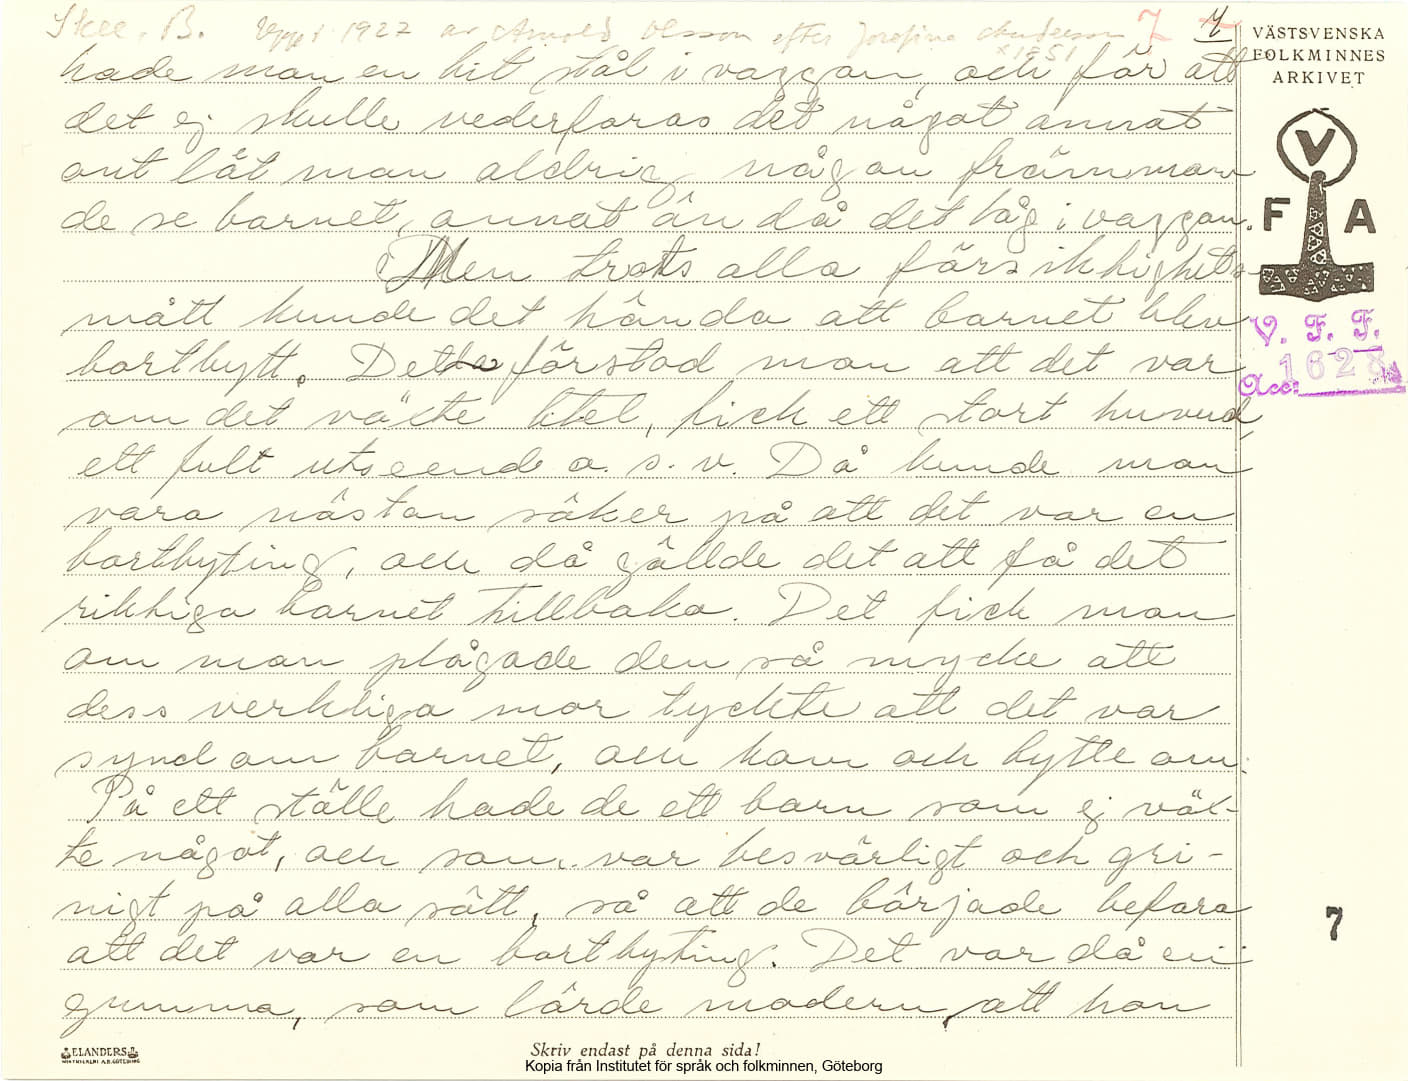 Skee. B. Uppt 1927 av Arnold Olsson efter Josefina Andersson 7 4
* 1851
VÄSTSVENSKA
FOLKMINNES
ARKIVET
V
F A
V. F. F.
Acc: 1628
hade man en bit stål i vaggan, och för att
det ej skulle vederfaras det något annat
ont lät man aldrig någon främman
de se barnet, annat än då det låg i vaggan.
Men trots alla försiktighets
mått kunde det hända att barnet blev
bortbytt. Detta förstod man att det var
om det växte litet, fick ett stort huvud,
ett fult utseende o. s. v. Då kunde man
vara nästan säker på att det var en
bortbyting, och då gällde det att få det
riktiga barnet tillbaka. Det fick man
om man plågade den så mycke att
dess verkliga mor tyckte att det var
synd om barnet, och kom och bytte om.
På ett ställe hade de ett barn som ej väx-
te något, och som var besvärligt och gri-
nigt på alla sätt, så att de började befara
att det var en bortbyting. Det var då en
gumma, som lärde modern, att hon
7
ELANDERS
Skriv endast på denna sida!
Kopia från Institutet för språk och folkminnen, Göteborg